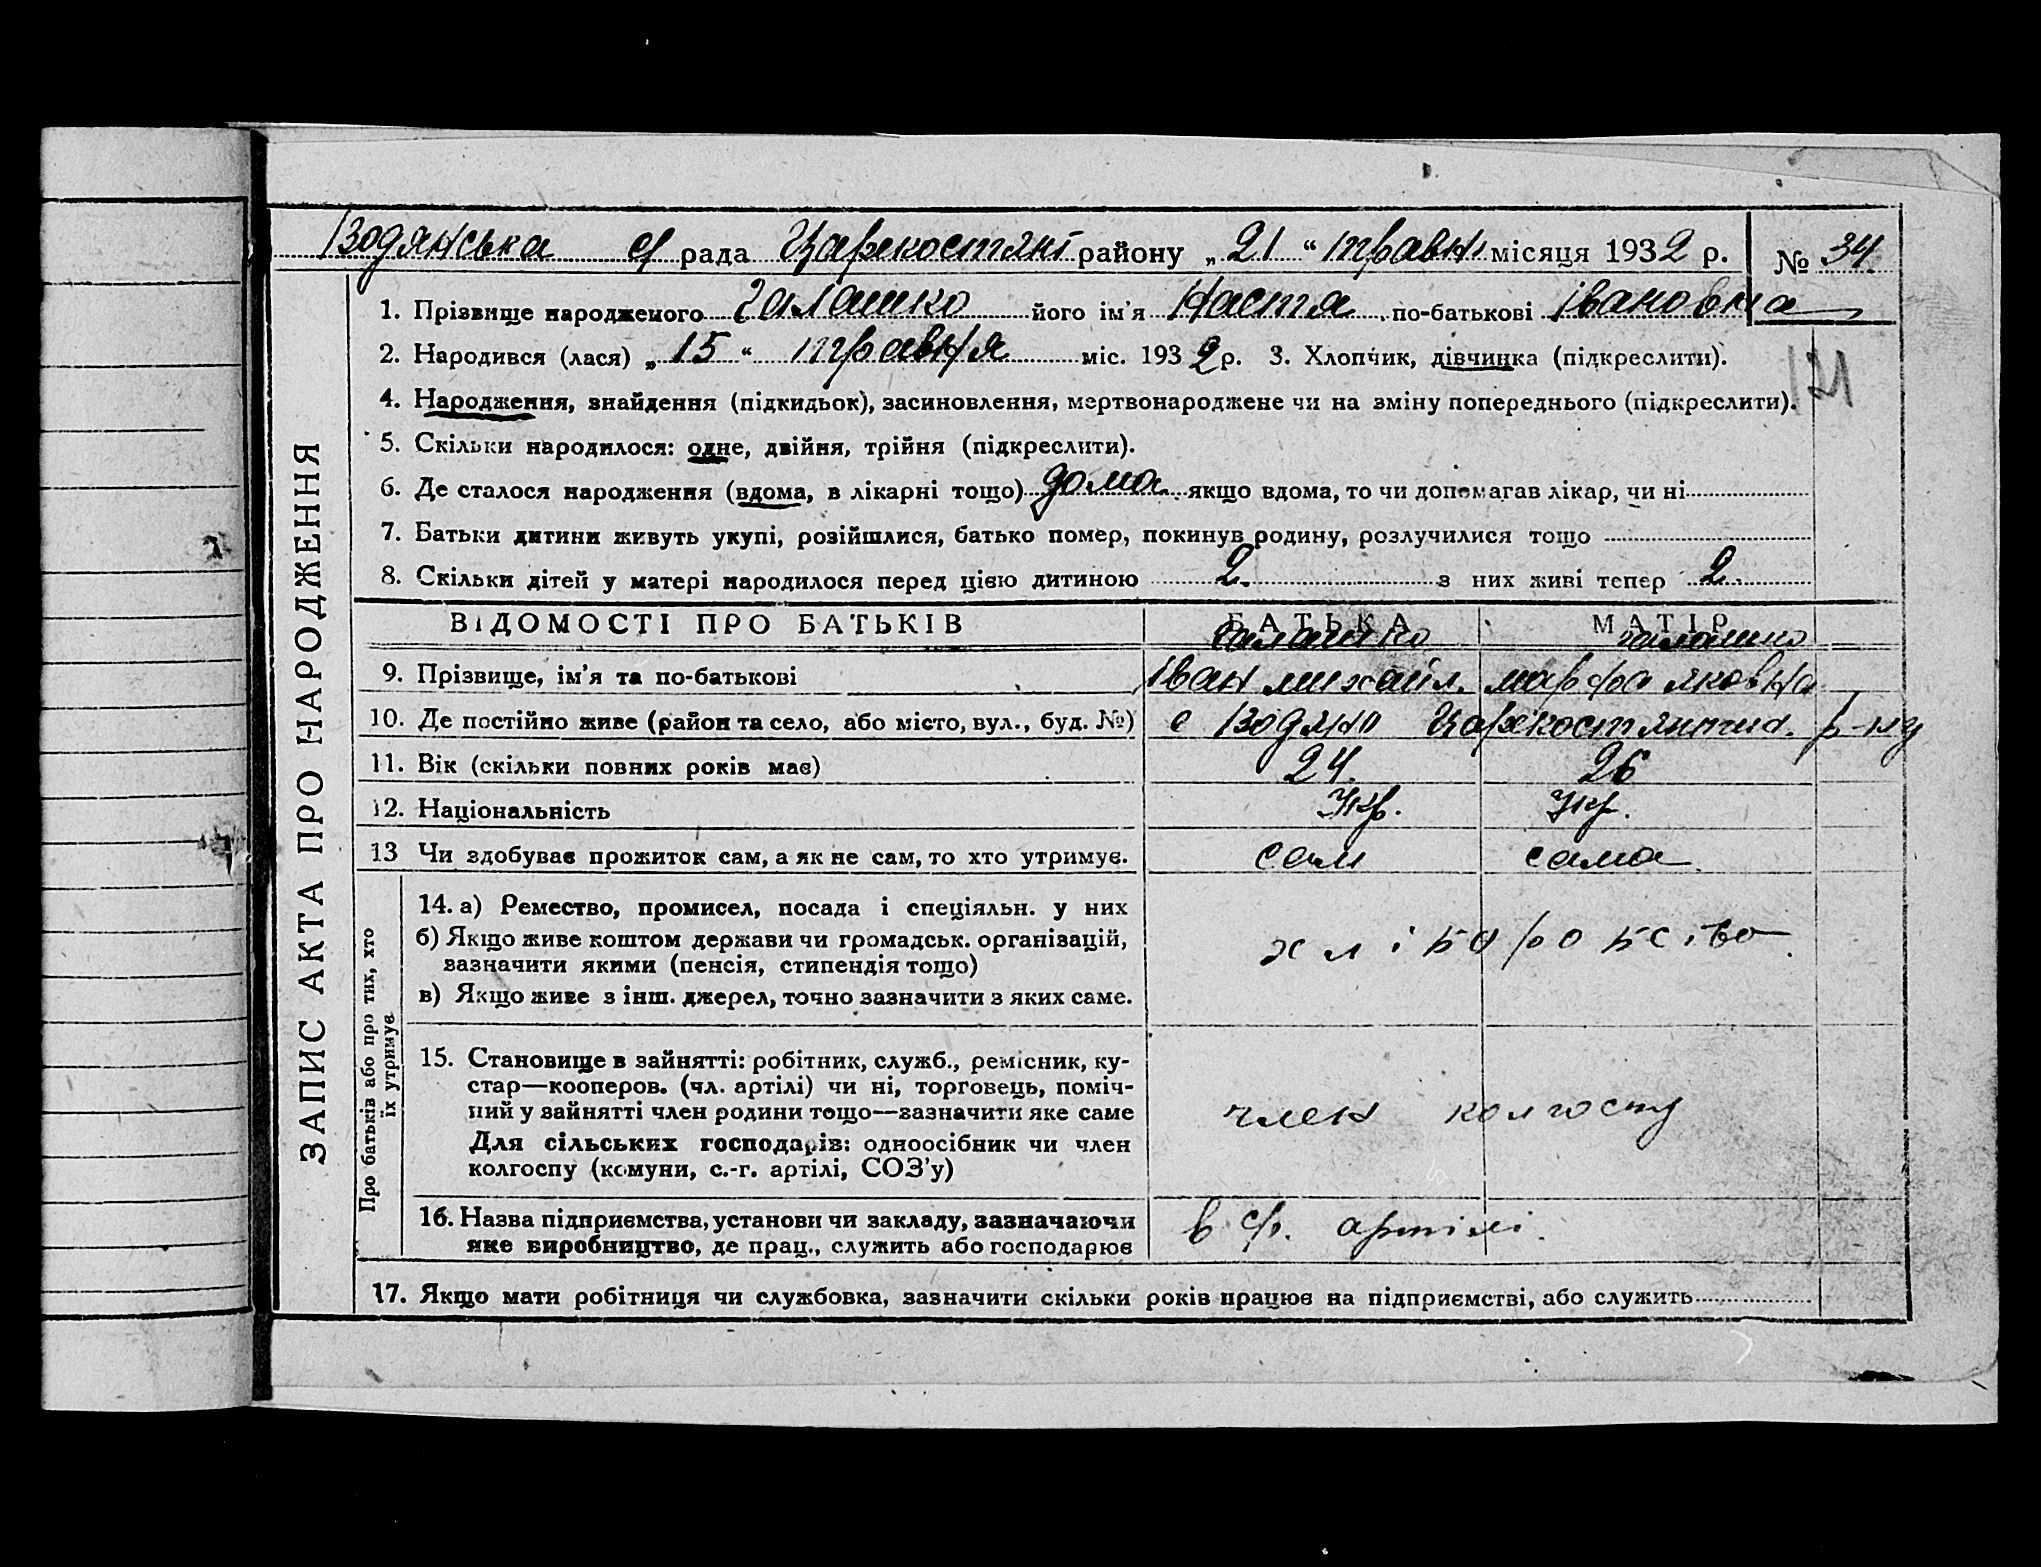 Водянська с/ рада Царекостянт району „ 21 “ травня місяця 1932 р. № 34
1. Прізвище народженого Галашко його ім'я Настя по-батькові Івановна
2. Народився (лася) „ 15 “ травня міс. 1932 р. 3. Хлопчик, дівчинка (підкреслити).
121
4. Народження, знайдення (підкидьок), засиновлення, мертвонароджене чи на зміну попереднього (підкреслити).
5. Скільки народилося: одне, двійня, трійня (підкреслити).
6. Де сталося народження (вдома, в лікарні тощо) дома якщо вдома, то чи допомагав лікар, чи ні
7. Батьки дитини живуть укупі, розійшлися, батько помер, покинув родину, розлучилися тощо
8. Скільки дітей у матері народилося перед цією дитиною 2 з них живі тепер 2
ВІДОМОСТІ ПРО БАТЬКІВ БАТЬКА МАТІР
Галашко Галашко
9. Прізвище, ім'я та по-батькові Іван Михайл. Марфа Яковна
10. Де постійно живе (район та село, або місто, вул., буд. №) с Водяно Царекостянтин. р-ну
11. Вік (скільки повних років має) 24. 26
12. Національність Укр. Укр.
13 Чи здобуває прожиток сам, а як не сам, то хто утримує. сам сама
14. а) Ремество, промисел, посада і спеціяльн. у них
б) Якщо живе коштом держави чи громадськ. організацій,
зазначити якими (пенсія, стипендія тощо)
хліборобство
в) Якщо живе з інш. джерел, точно зазначити з яких саме.
15. Становище в зайнятті: робітник, служб., ремісник, ку-
стар—кооперов. (чл. артілі) чи ні, торговець, поміч-
ний у зайнятті член родини тощо—зазначити яке саме
член колгоспу
Для сільських господарів: одноосібник чи член
колгоспу (комуни, с.-г. артілі, СОЗ'у)
16. Назва підприємства, установи чи закладу, зазначаючи
яке виробництво, де прац., служить або господарює
в с/г. артілі.
17. Якщо мати робітниця чи службовка, зазначити скільки років працює на підприємстві, або служить
ЗАПИС АКТА ПРО НАРОДЖЕННЯ
Про батьків або про тих, хто
їх утримує